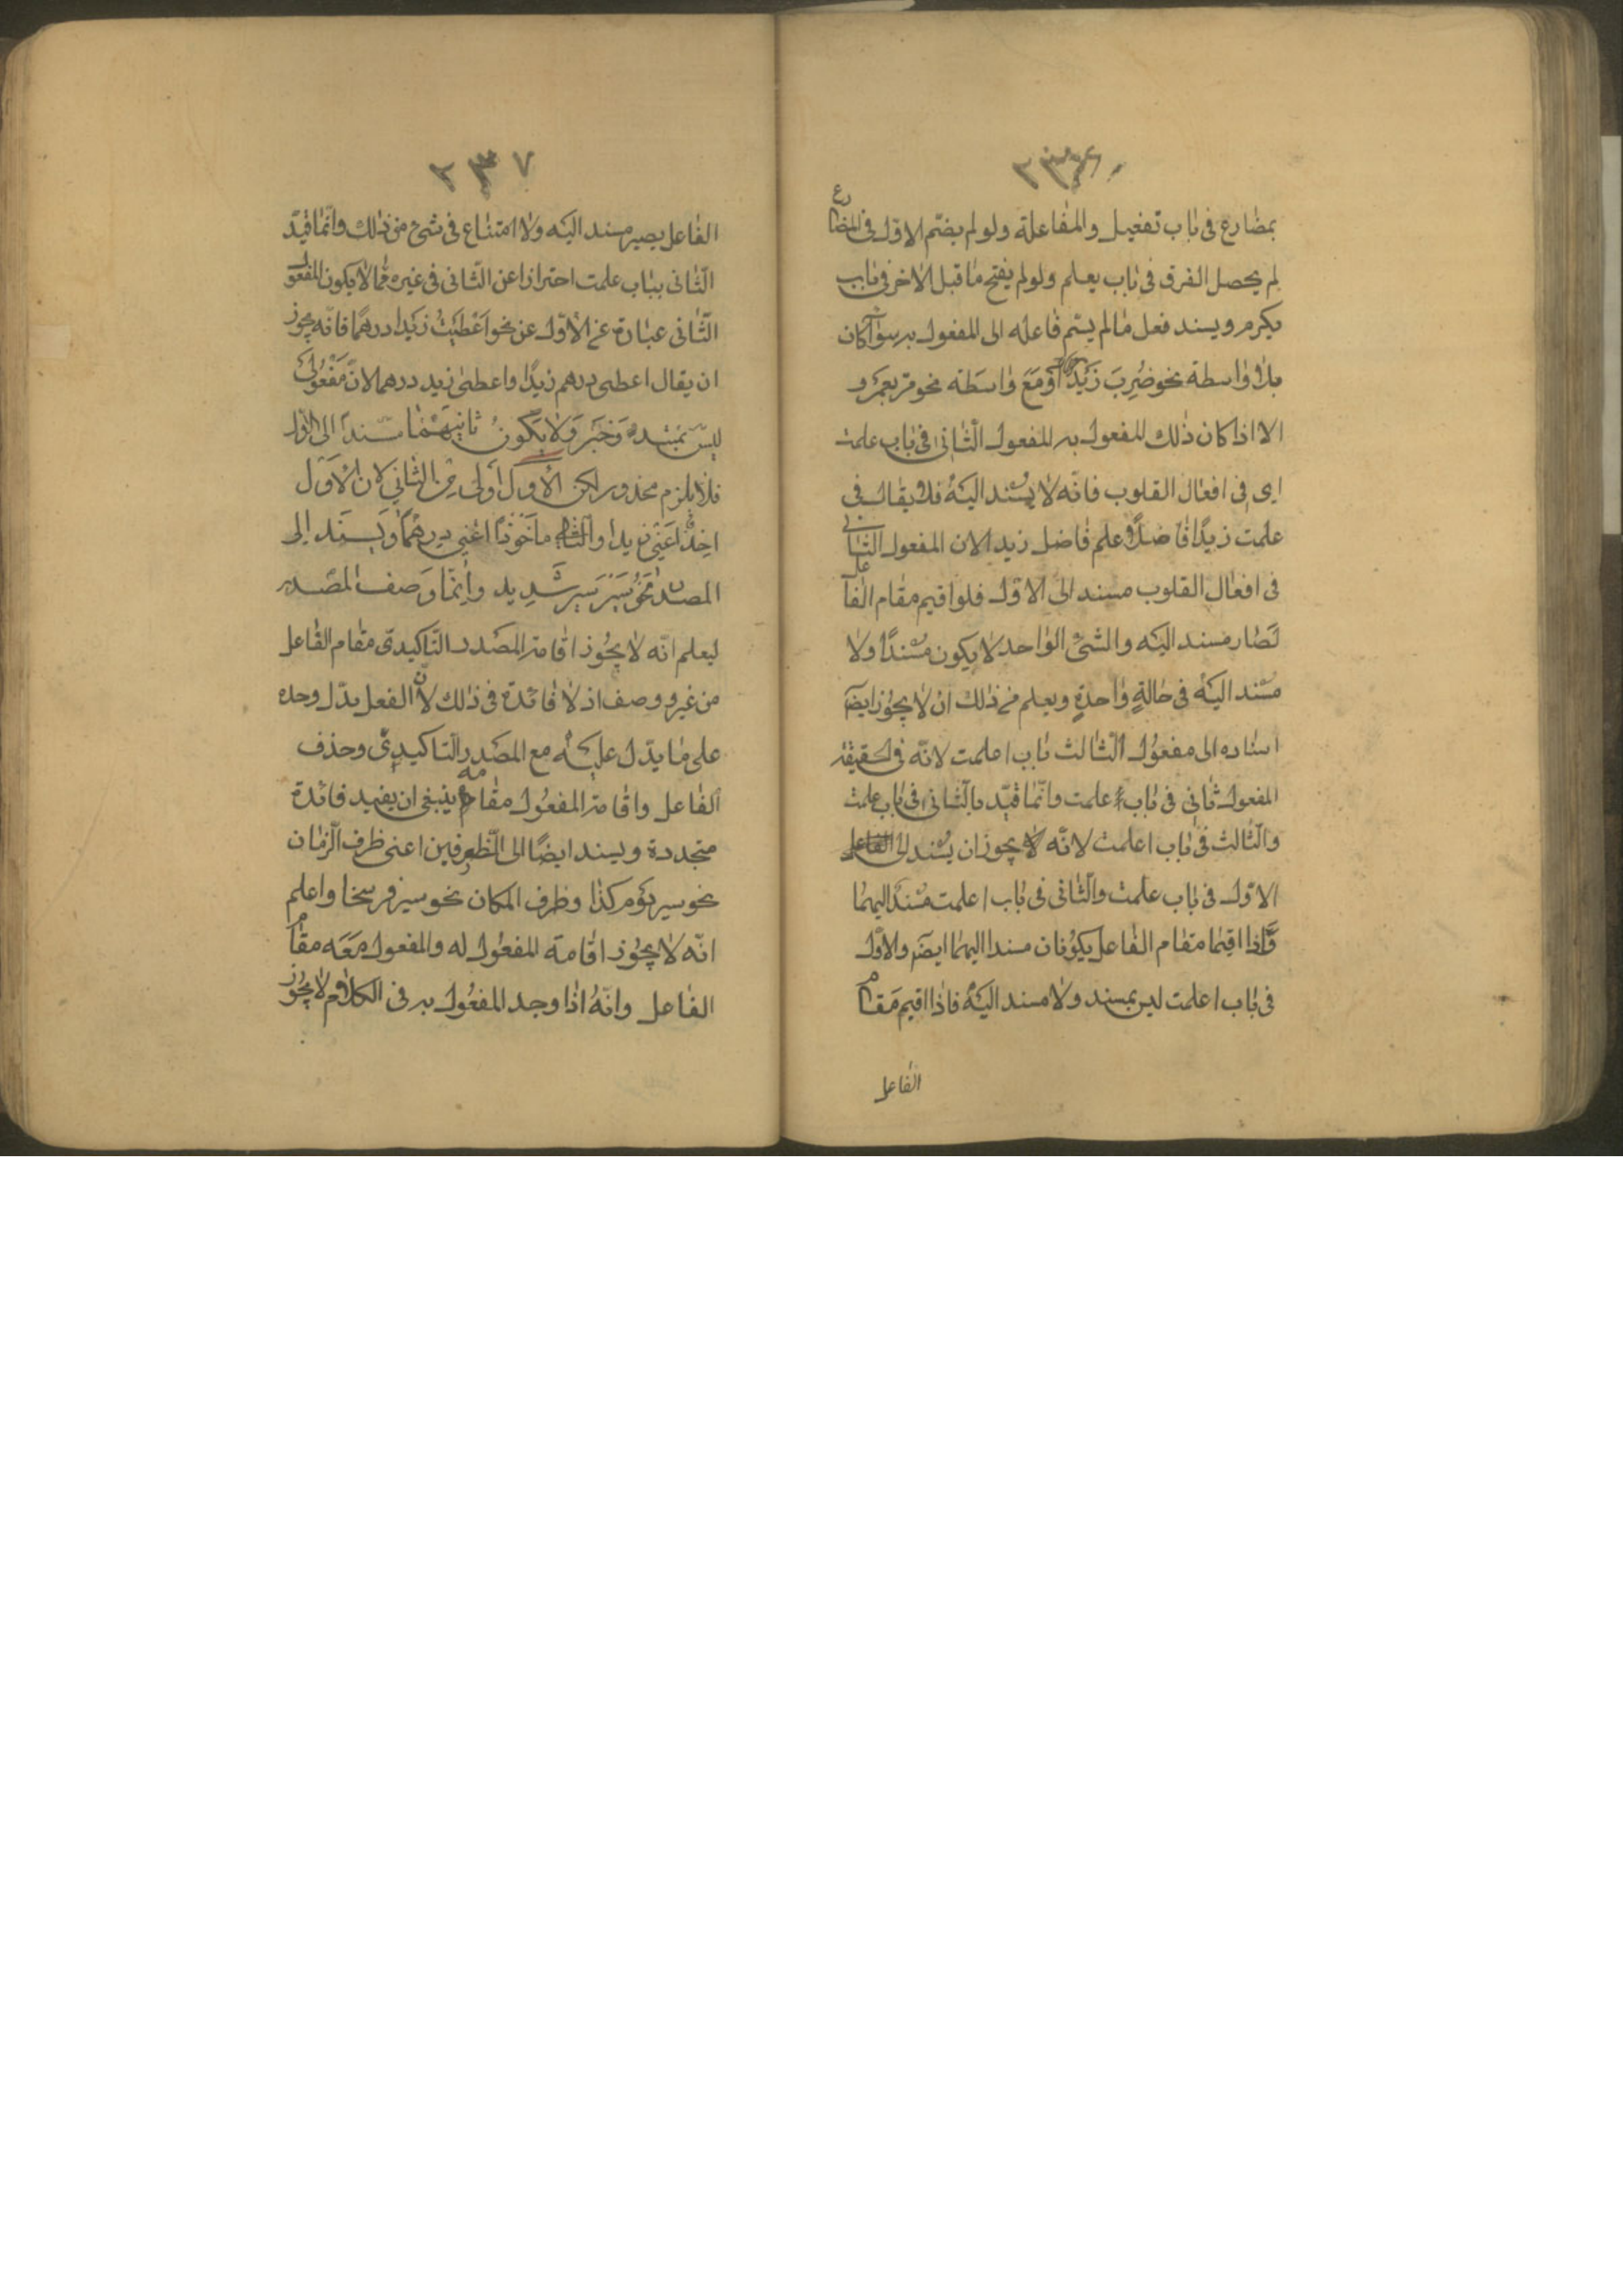 ٢٣٦
بمضارع فى باب تفعيل والمفاعلة ولو لم يضم الاول فى المضارع
لم يحصل الفرق فى باب يعلم ولو لم يفتح ما قبل الاخر فى باب
يكرم ويسند فعل ما لم يسم فاعله الى المفعول به سوآء كان
بلا واسطة نحو ضُرِبَ زَيْدٌ اَوْ مَعَ واسَطة نحو مر بعمرو
الا اذا كان ذلك المفعول به المفعول الثانى فى باب علمت
اى فى افعال القلوب فانّه لا يسْند اليهُ فلا يقال فى
علمت زيدًا فاضلًا علم فاضل زيدا لان المفعول الثانى
فى افعال القلوب مسند الى الاوّل فلو اقيم مقام الفاعل
لصار مسند اليَه والشئ الواحد لا يكون مسْندًا ولا
مسْند اليَهُ فى حالةٍ واحدةٍ ويعلم من ذلك انْ لا يجُوْز ايضًا
اسناده الى مفعُول الثالث باب اعلمت لانّه فى الحقيقة
المفعول ثانى فى باب علمت وانّما قيّد بالثانى فى باب علمت
والثالث فى باب اعلمت لانّه لا يجوز ان يسْند الى الفاعل
الاوّل فى باب علمت والثانى فى باب اعلمت مسْند اليهما
وَاذا اقيما مقام الفاعل يكوُنان مسندا اليهما ايضًا والاوّل
فى باب اعلمت ليس بمسند ولا مسند اليَهُ فاذا اقيم مَقام
الفاعل
٢٣٧
الفاعل يصير مسند اليَه ولا امتناع فى شئ من ذلك وانّما قيّد
الثّانى بباب علمت احترازا عن الثّانى فى غيره ممّا لا يكون المفعول
الثّانى عبارة عن الاوّل عن نحو اَعْطَيْتُ زَيْدا درهمًا فانّه يجوز
ان يقال اعطى درهم زيدًا واعطى زيد درهما لانّ مَفْعُولَى
ليسَ بمبتدء وَخَبَر وَلا يَكُونُ ثانيهَمُا مسنداً الى الاوّل
فلا يلزم محذور لكن الأوّل أولى من الثاني لان الأوّل
اخِذٌ اَعْنِى زيدا والثانى مَاخَوْذاً اعْنِي دِرهَمًا وَيسنَد الى
المصدر نَحْوُ سِيْرَ سَيْرٌ شَدِيد وانّما وَصف المصْدر
ليعلم انّه لا يجُوْز اقامة المصْدر التاكيدى مقام الفاعل
من غير وصف اذ لا فائدة فى ذلك لانّ الفعل يدّل وحده
على ما يدّل عليه مع المصْدر التاكيدِى وحذف
الفاعل واقامة المفعُول مقامه ينبغى ان يفيد فائدة
متجددة ويسند ايضًا الى الظرفين اعنى ظرف الزمان
نحو سير يَوْم كذا وظرف المكان نحو سير فرسخا واعلم
انّه لا يجُوْز اقامة المفعُول له والمفعول مَعَه مقام
الفاعل وانّهُ اذا وجد المفعُول به فى الكلام لا يجُوْز